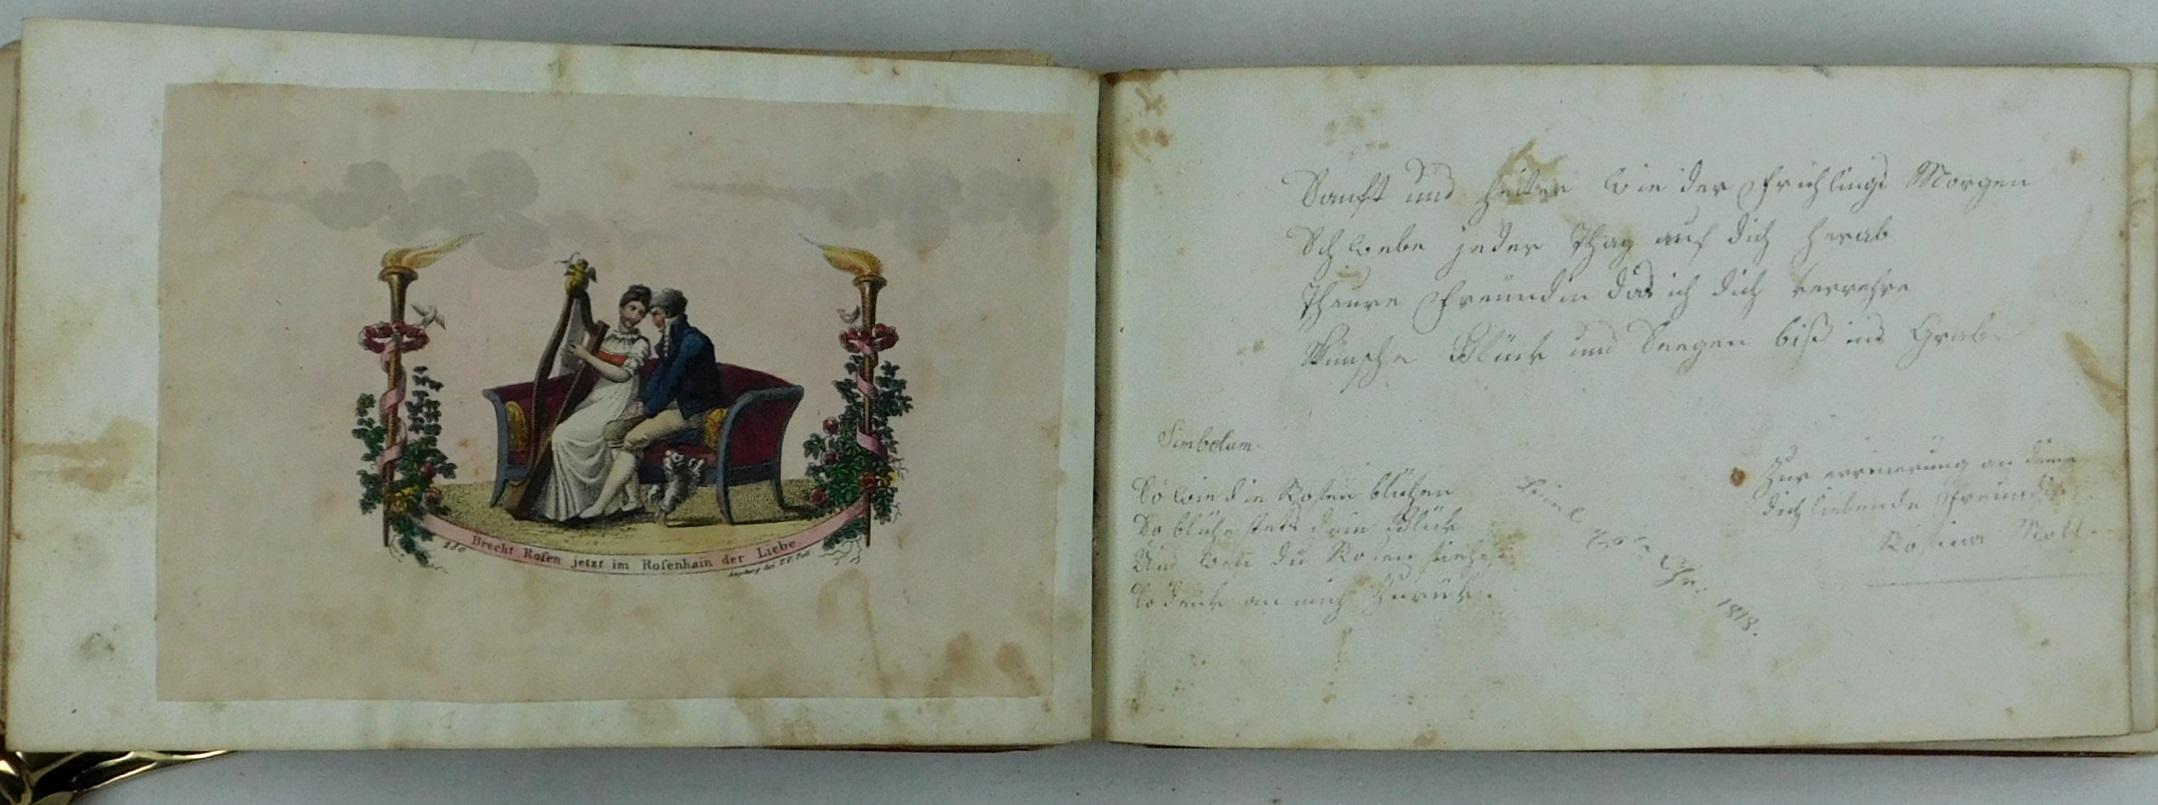 Brecht Rosen jetzt im Rosenhain der Liebe.
180
Augsburg bei
Sanft und heiter wie der Frühlings Morgen
Schwebe jeder Thag auf dich herab
Theure Freündin das ich dich verrehre
Wünsche Glück und Seegen biß ins Grab
Simbolum.
So wie die Rosen blühen
So blühe stets dein Glück
Und wen du Rosen siehest
So denk an mich zurük.
1813.
Zur errinerung an deine
dich liebende Freundin
Rosina Moll.